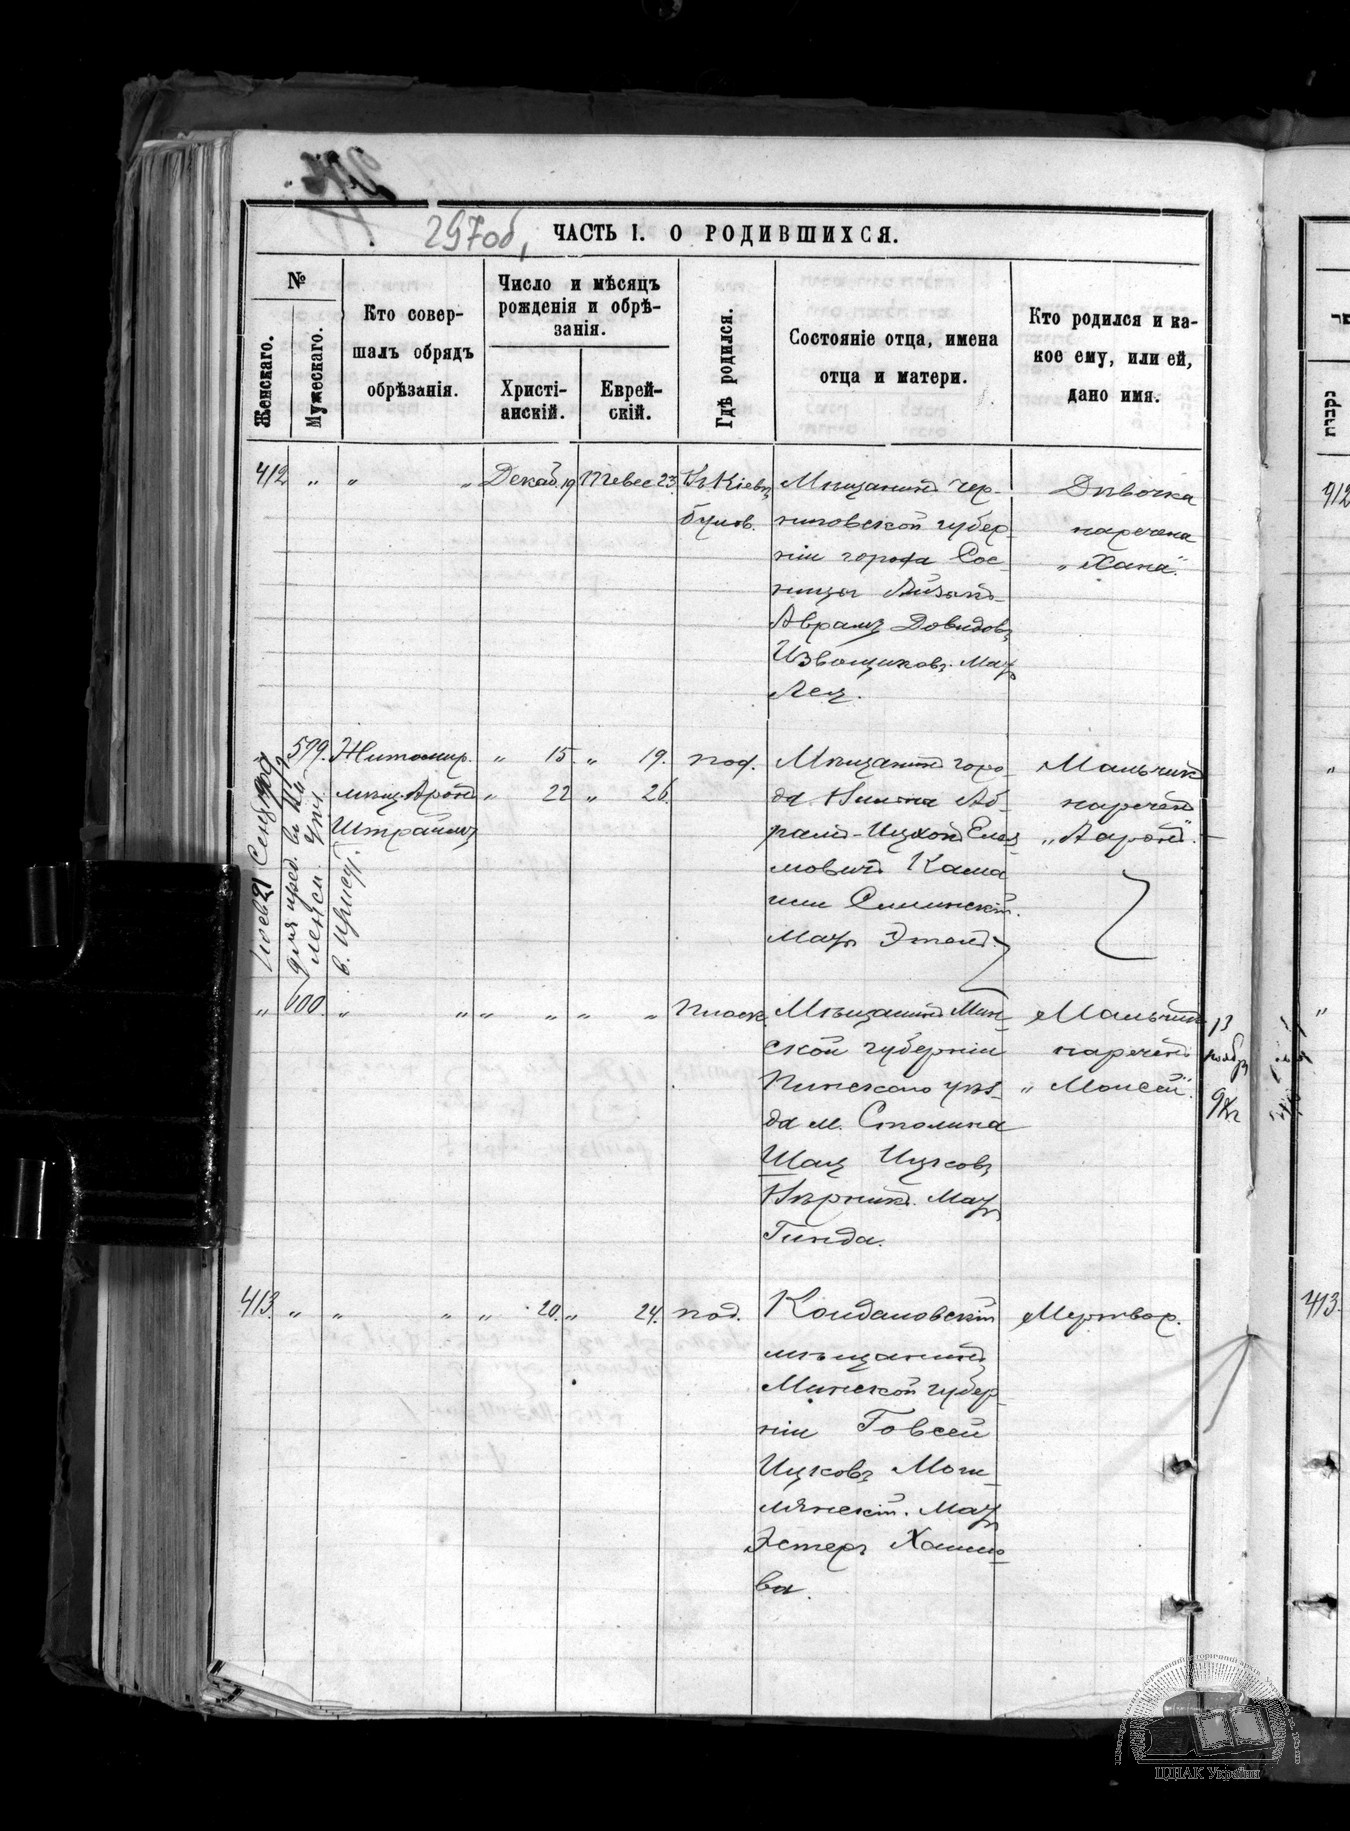 297об,
ЧАСТЬ I. О РОДИВШИХСЯ.
№
Женскаго.
Мужескаго.
Кто совер-
шалъ обрядъ
обрѣзанія.
Число и мѣсяцъ
рожденія и обрѣ-
занія.
Христі-
анскій.
Еврей-
скій.
Гдѣ родился.
Состояніе отца, имена
отца и матери.
Кто родился и ка-
кое ему, или ей,
дано имя.
412 „ „ „ Декаб. 19 Тевес 23. Кіевѣ
Мѣщанинъ Чер-
ниговской губер-
ніи города Сос-
ницы
Аврамъ Довидовъ
Извощиковъ. Мать
Лея.
Дѣвочка
наречена
„Хана".
„ 599. Житомир.
мѣщ. Аронъ
Штраймъ
„ 15 „ 19.
„ 22 „ 26.
под.
Мѣщанинъ горо-
да Аб-
рамъ-Ицхокъ
мовичъ
или Слинскій.
Мать
Мальчикъ
наречёнъ
„Ааронъ".
21
„ 600. „ „ „ „ „ „ Плоск.
Мѣщанинъ Мин-
ской губерніи
Пинскаго уѣз-
да м. Столина
Шая Ицковъ
Нѣрникъ. Мать
Гинда.
Мальчикъ
наречёнъ
„Моисей".
13
ноябр
413. „ „ „ „ 20. „ 24. под.
Койдановскій
мѣщанинъ
Минской губер-
ніи Говсей
Ицковъ Моги-
лянскій. Мать
Эстеръ Хаимо-
ва.
Мертвор.
412
„
„
413.
נקבות
ЦДІАК України